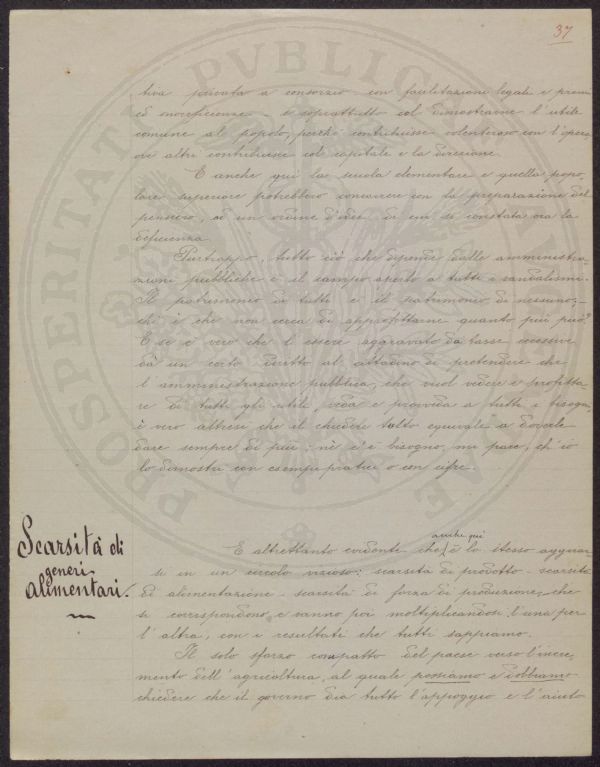 37
tiva privata a consorzio con facilitazioni legali e premi
ed onorificenze e soprattutto col dimostrarne l'utile
comune al popolo, perchè contribuisse volenteroso con l'opera
ove altri contribuisse col capitale e la direzione.
E anche qui la scuola elementare e quella popo-
lare superiore potrebbero concorrere con la preparazione del
pensiero, ad un ordine d'idee di cui si constata ora la
deficienza.
Purtroppo, tutto ciò che dipende dalle amministra-
zioni pubbliche è il campo aperto a tutti i vandalismi.
Il patrimonio di tutti è il patrimonio di nessuno;
chi è che non cerca di approfittarne quanto più può?
E se è vero che l'essere aggravato da tasse eccessive
dà un certo diritto al cittadino di pretendere che
l'amministrazione pubblica, che vuol vedere e profitta-
re di tutti gli utili, veda e provveda a tutti i bisogni,
è vero altresì che il chiedere tutto equivale a dovere
dare sempre di più: nè c'è bisogno, mi pare, ch'io
lo dimostri con esempi pratici o con cifre.
Scarsità di
generi
alimentari.
anche qui
È altrettanto evidente che è lo stesso aggirar-
si in un circolo vizioso: scarsità di prodotto - scarsità
di alimentazione - scarsità di forza di produzione, che
si corrispondono e vanno poi moltiplicandosi l'una per
l'altra, con i resultati che tutti sappiamo.
Il solo sforzo compatto del paese verso l'incre-
mento dell'agricoltura, al quale possiamo e dobbiamo
chiedere che il governo dia tutto l'appoggio e l'aiuto
PROSPERITATI PVBLICAE